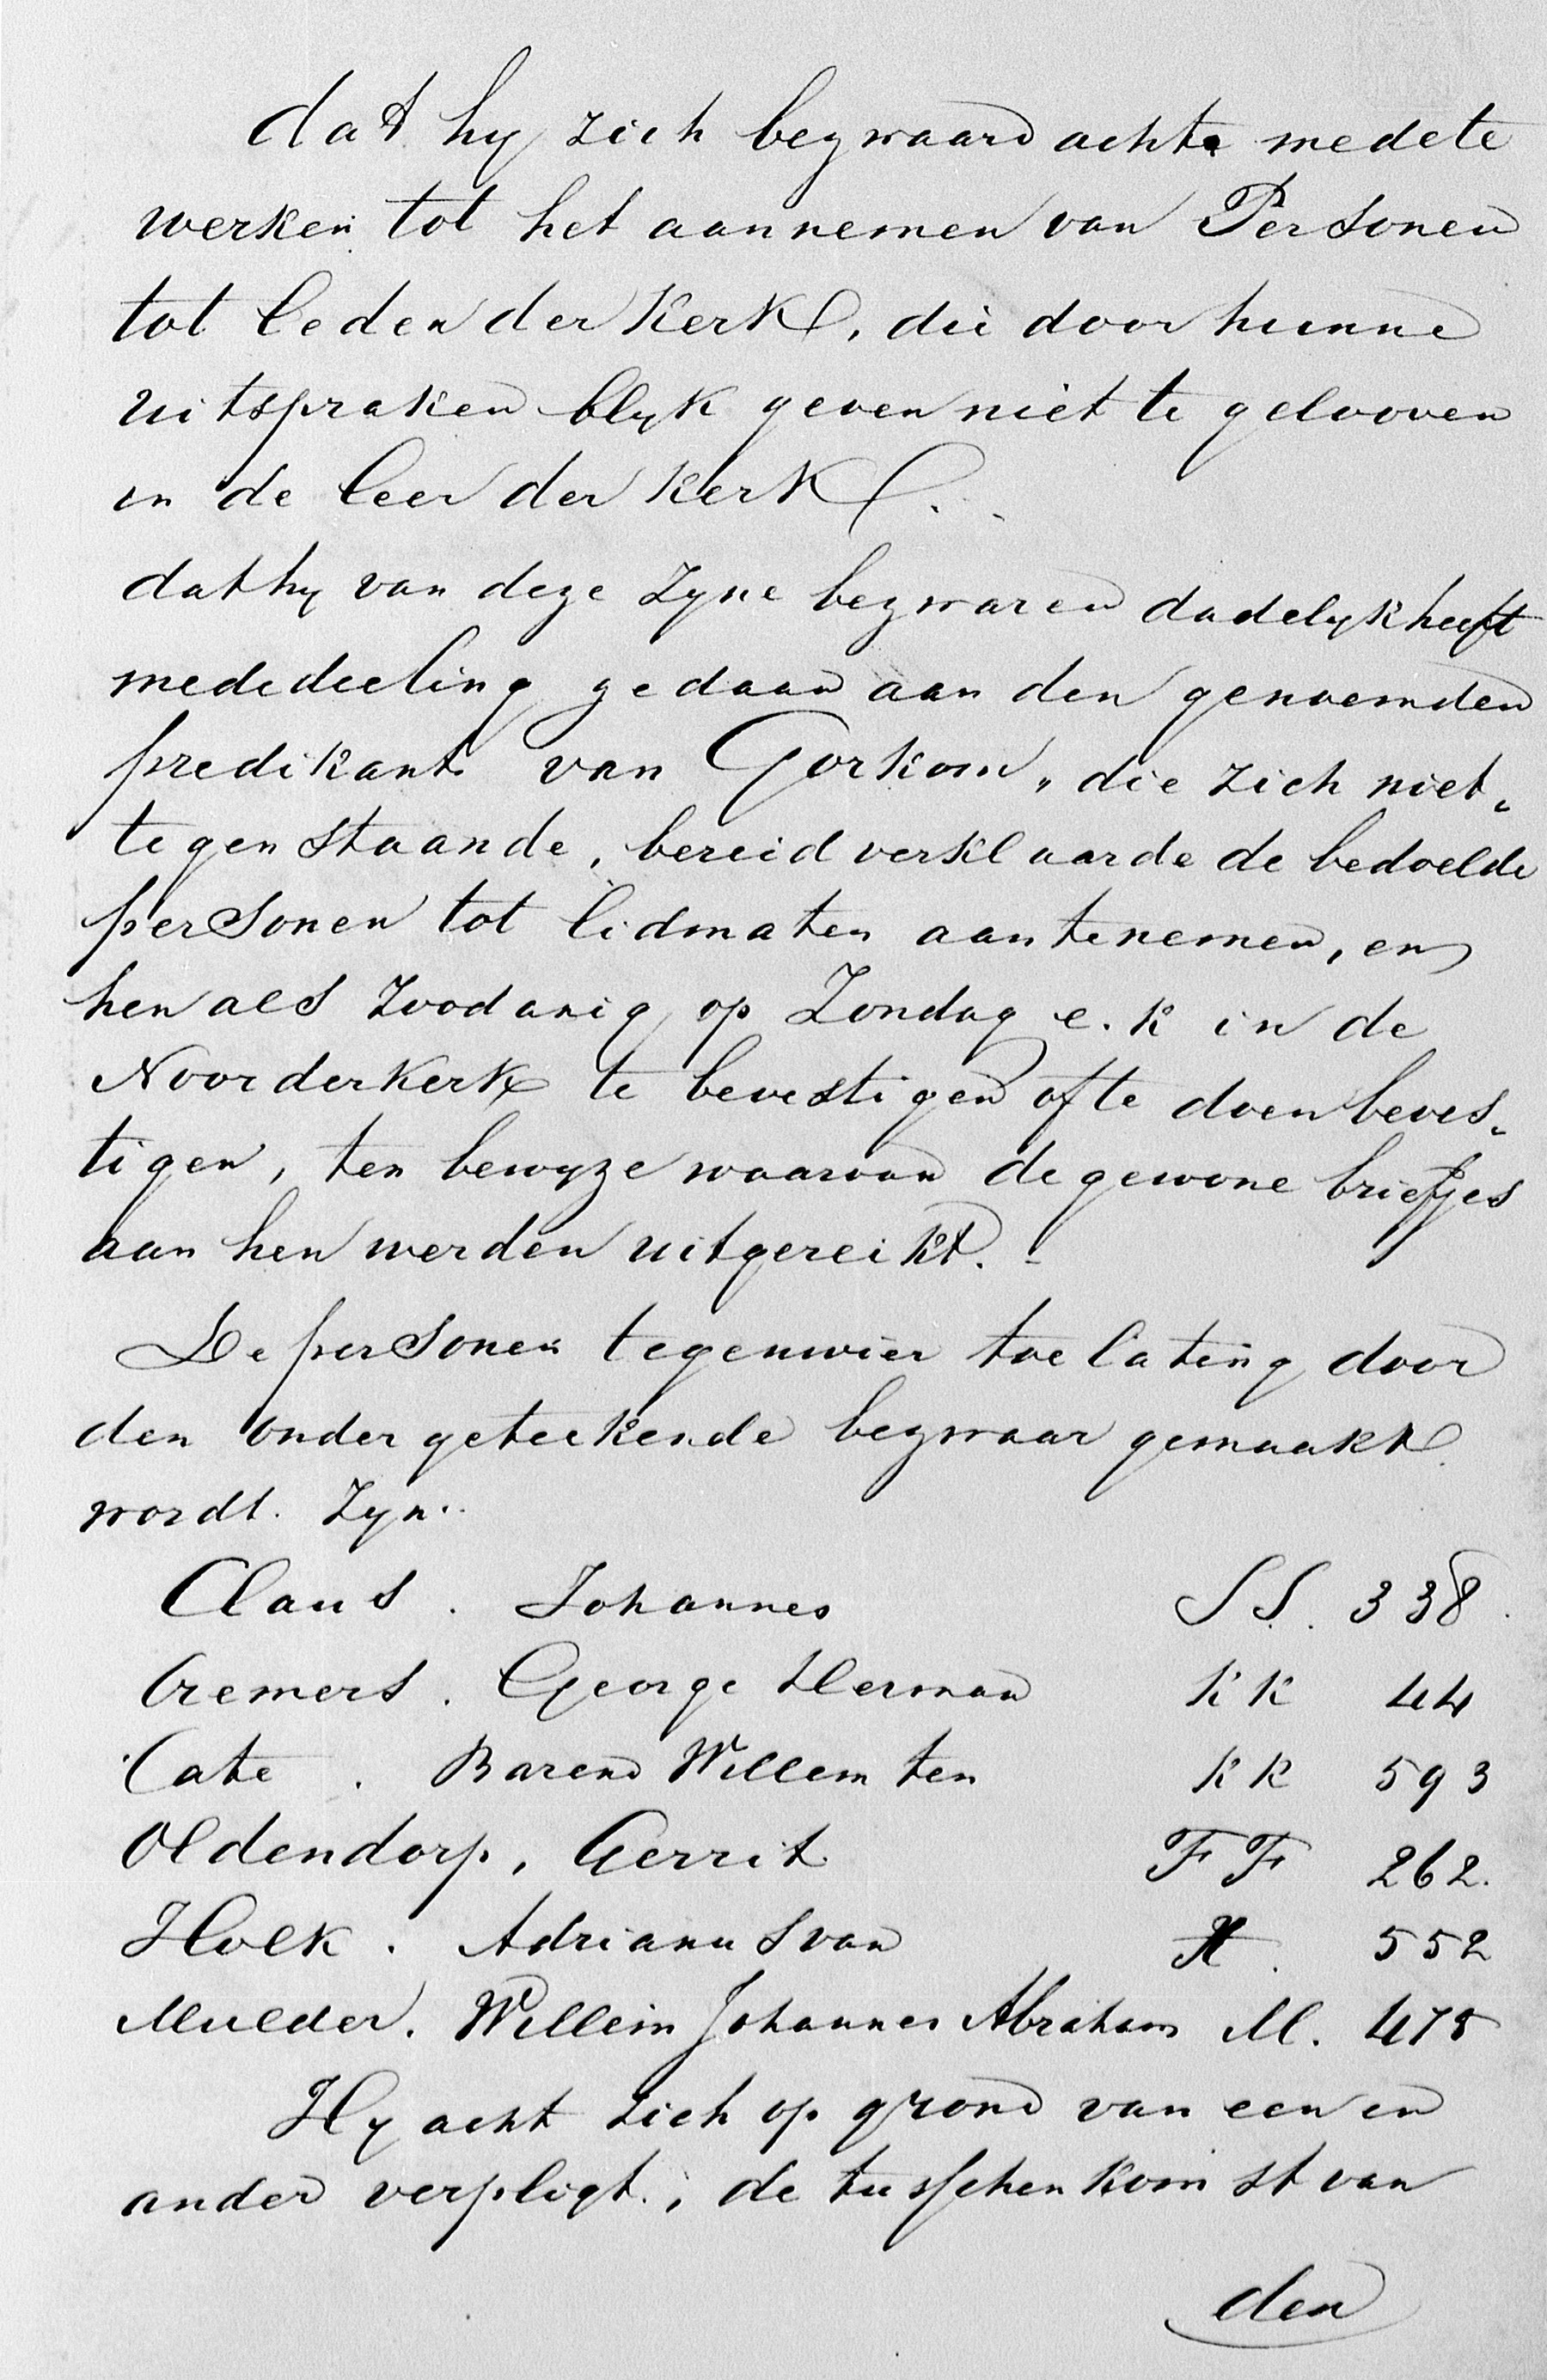 dat hy zich bezwaard achte mede te
werken tot het aannemen van Personen
tot leden der Kerk, die door hunne
uitspraken blyk geven niet te gelooven
in de leer der Kerk.
dat hy van deze zyne bezwaren dadelyk heeft
mededeeling gedaan aan den genoemden
predikant van Gorkom, die zich niet„
tegenstaande, bereid verklaarde de bedoelde
personen tot lidmaten aantenemen, en
hen als zoodanig op Zondag e.k in de
Noorderkerk te bevestigen ofte doen beves„
tigen, ten bewyze waarvan de gewone briefjes
aan hen werden uitgereikt.
De personen tegen wier toelating door
den ondergeteekende bezwaar gemaakt
wordt. Zyn..
Claus. Johannes SS. 338.
Cremers. George Herman KK 44
Cate. Barend Willem ten KK 593
Oldendorp, Gerrit FF 262.
Hoek. Adrianus van 552
Mulder. Willem Johannes Abraham M. 475
Hy acht zich op grond van een en
ander verpligt, de tusschenkomst van
den